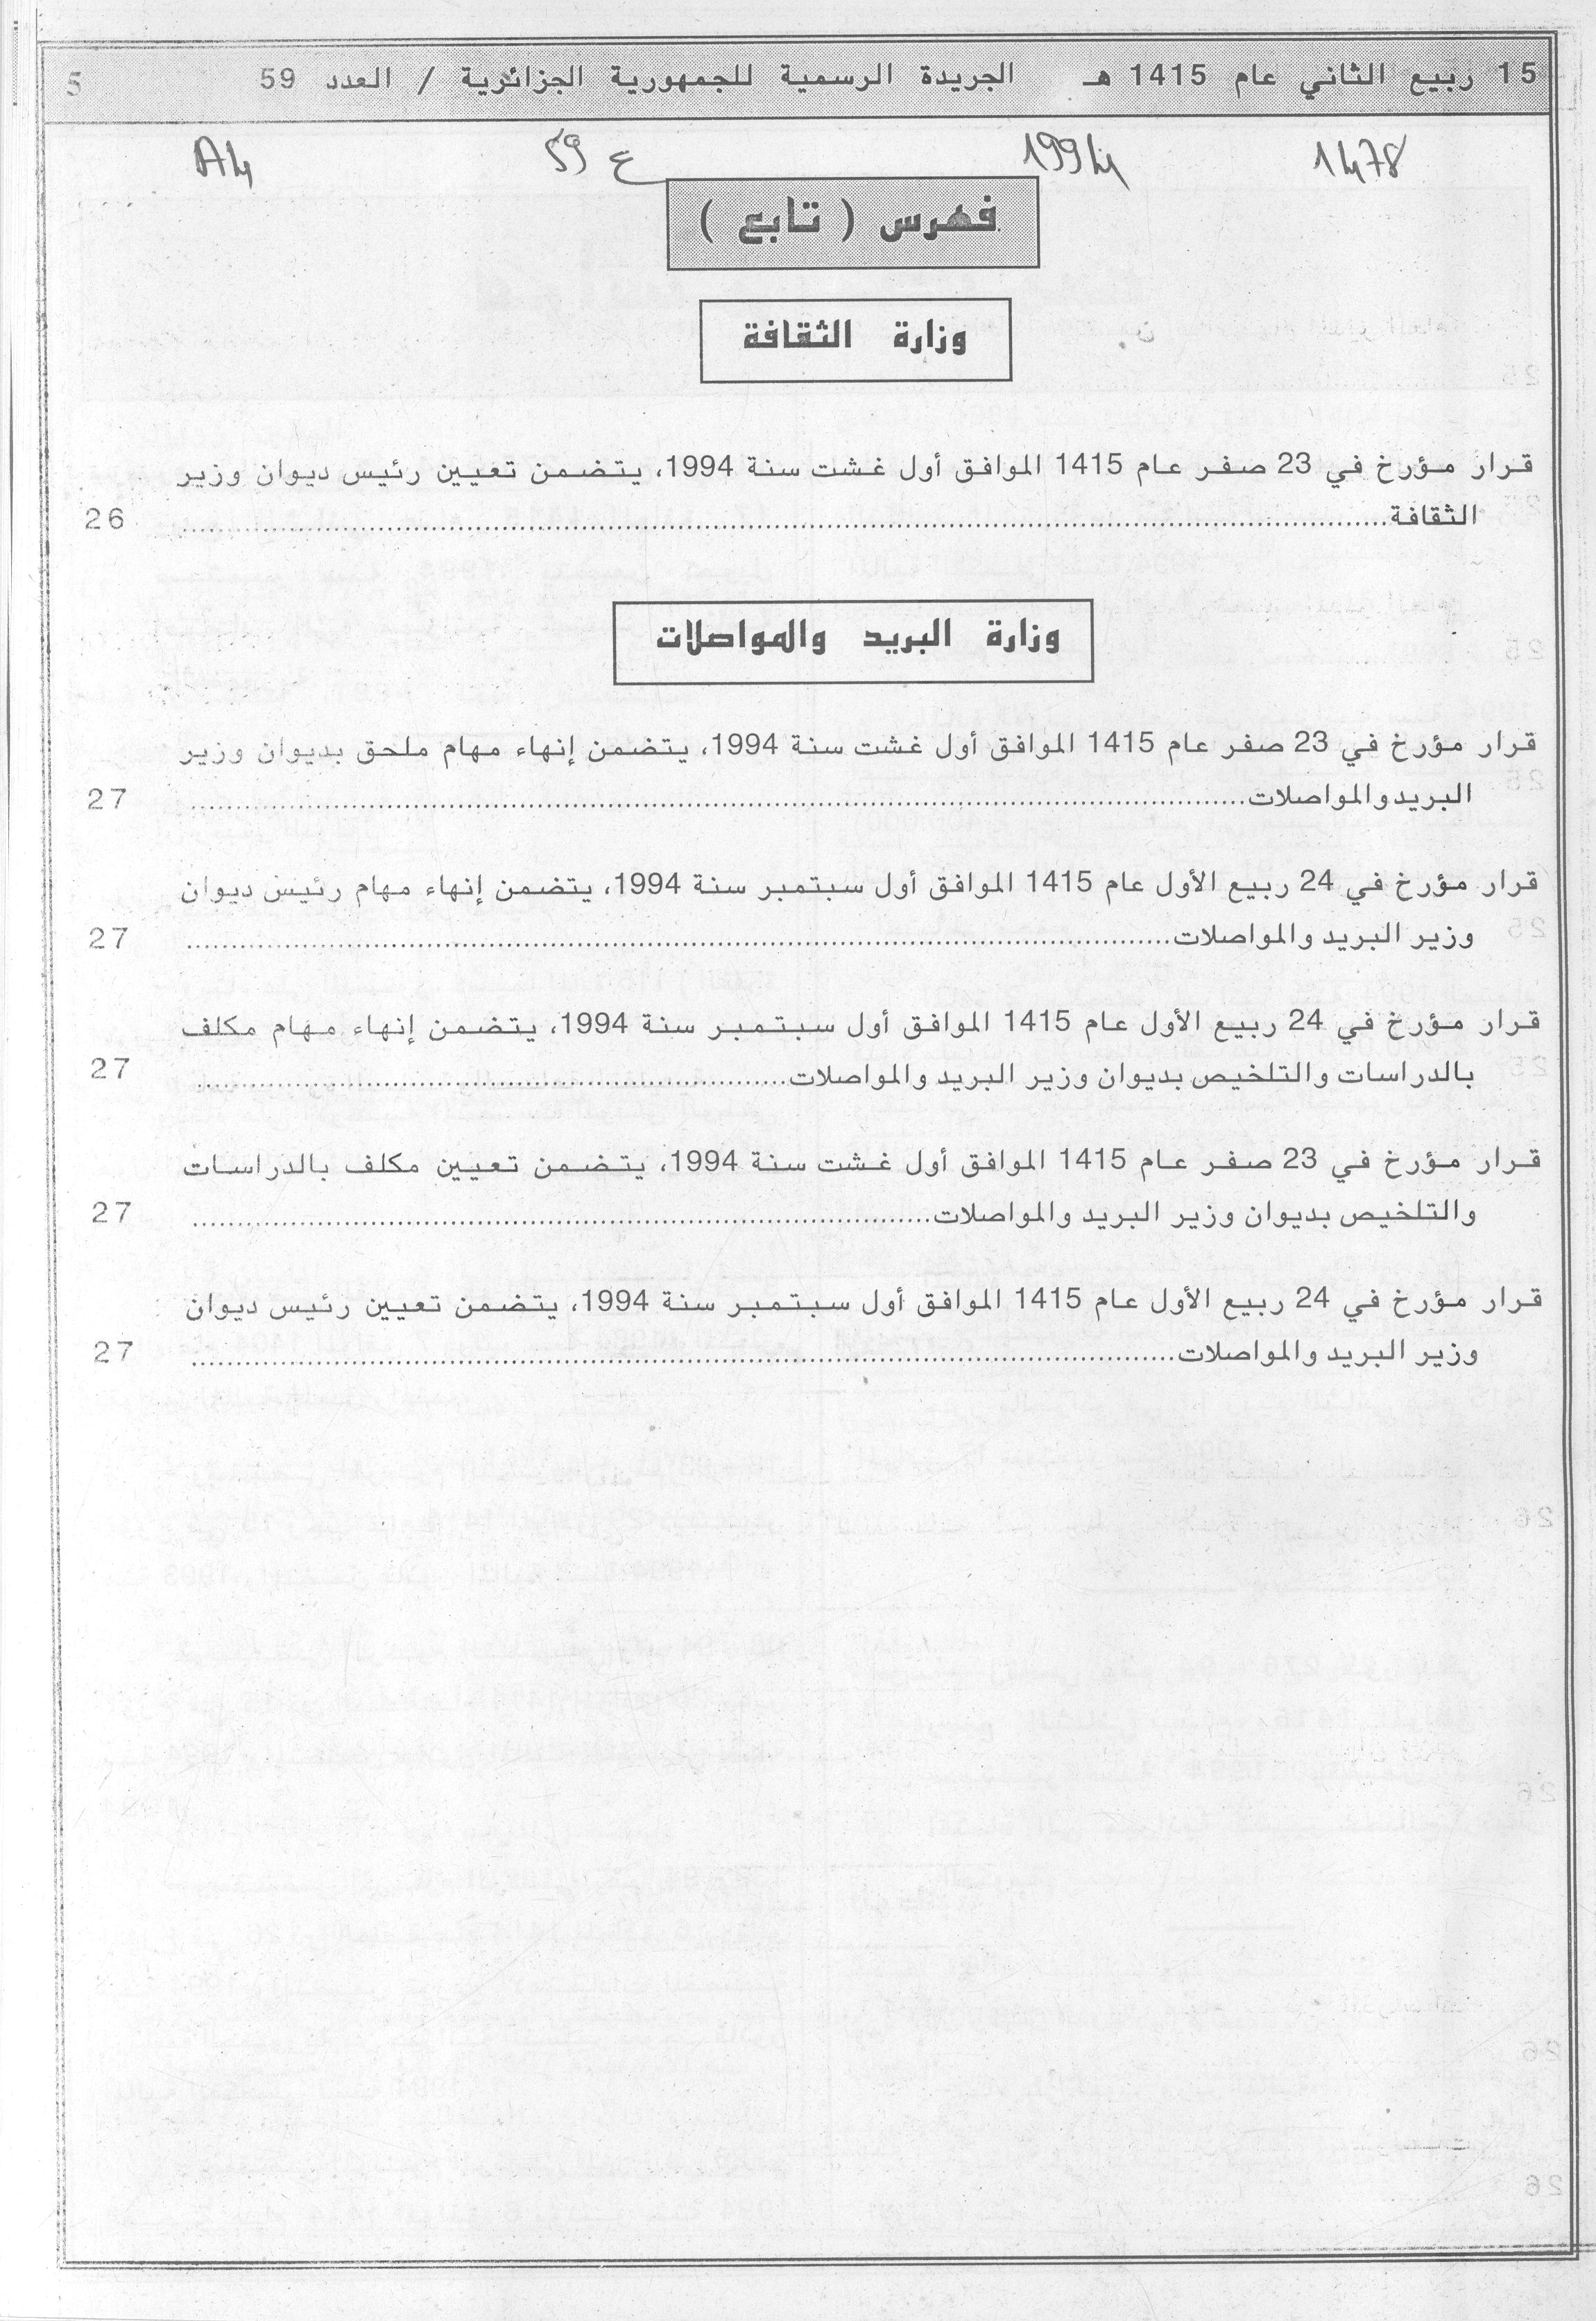 15 ربيع الثاني عام 1415 هـ الجريدة الرسمية للجمهورية الجزائرية / العدد 59 5
1478 1994 ع 59 A4
فهرس ( تابع )
وزارة الثقافة
قرار مؤرخ في 23 صفر عام 1415 الموافق أول غشت سنة 1994، يتضمن تعيين رئيس ديوان وزير
الثقافة........ 26
وزارة البريد والمواصلات
قرار مؤرخ في 23 صفر عام 1415 الموافق أول غشت سنة 1994، يتضمن إنهاء مهام ملحق بديوان وزير
البريد والمواصلات........ 27
قرار مؤرخ في 24 ربيع الأول عام 1415 الموافق أول سبتمبر سنة 1994، يتضمن إنهاء مهام رئيس ديوان
وزير البريد والمواصلات........ 27
قرار مؤرخ في 24 ربيع الأول عام 1415 الموافق أول سبتمبر سنة 1994، يتضمن إنهاء مهام مكلف
بالدراسات والتلخيص بديوان وزير البريد والمواصلات........ 27
قرار مؤرخ في 23 صفر عام 1415 الموافق أول غشت سنة 1994، يتضمن تعيين مكلف بالدراسات
والتلخيص بديوان وزير البريد والمواصلات........ 27
قرار مؤرخ في 24 ربيع الأول عام 1415 الموافق أول سبتمبر سنة 1994، يتضمن تعيين رئيس ديوان
وزير البريد والمواصلات........ 27